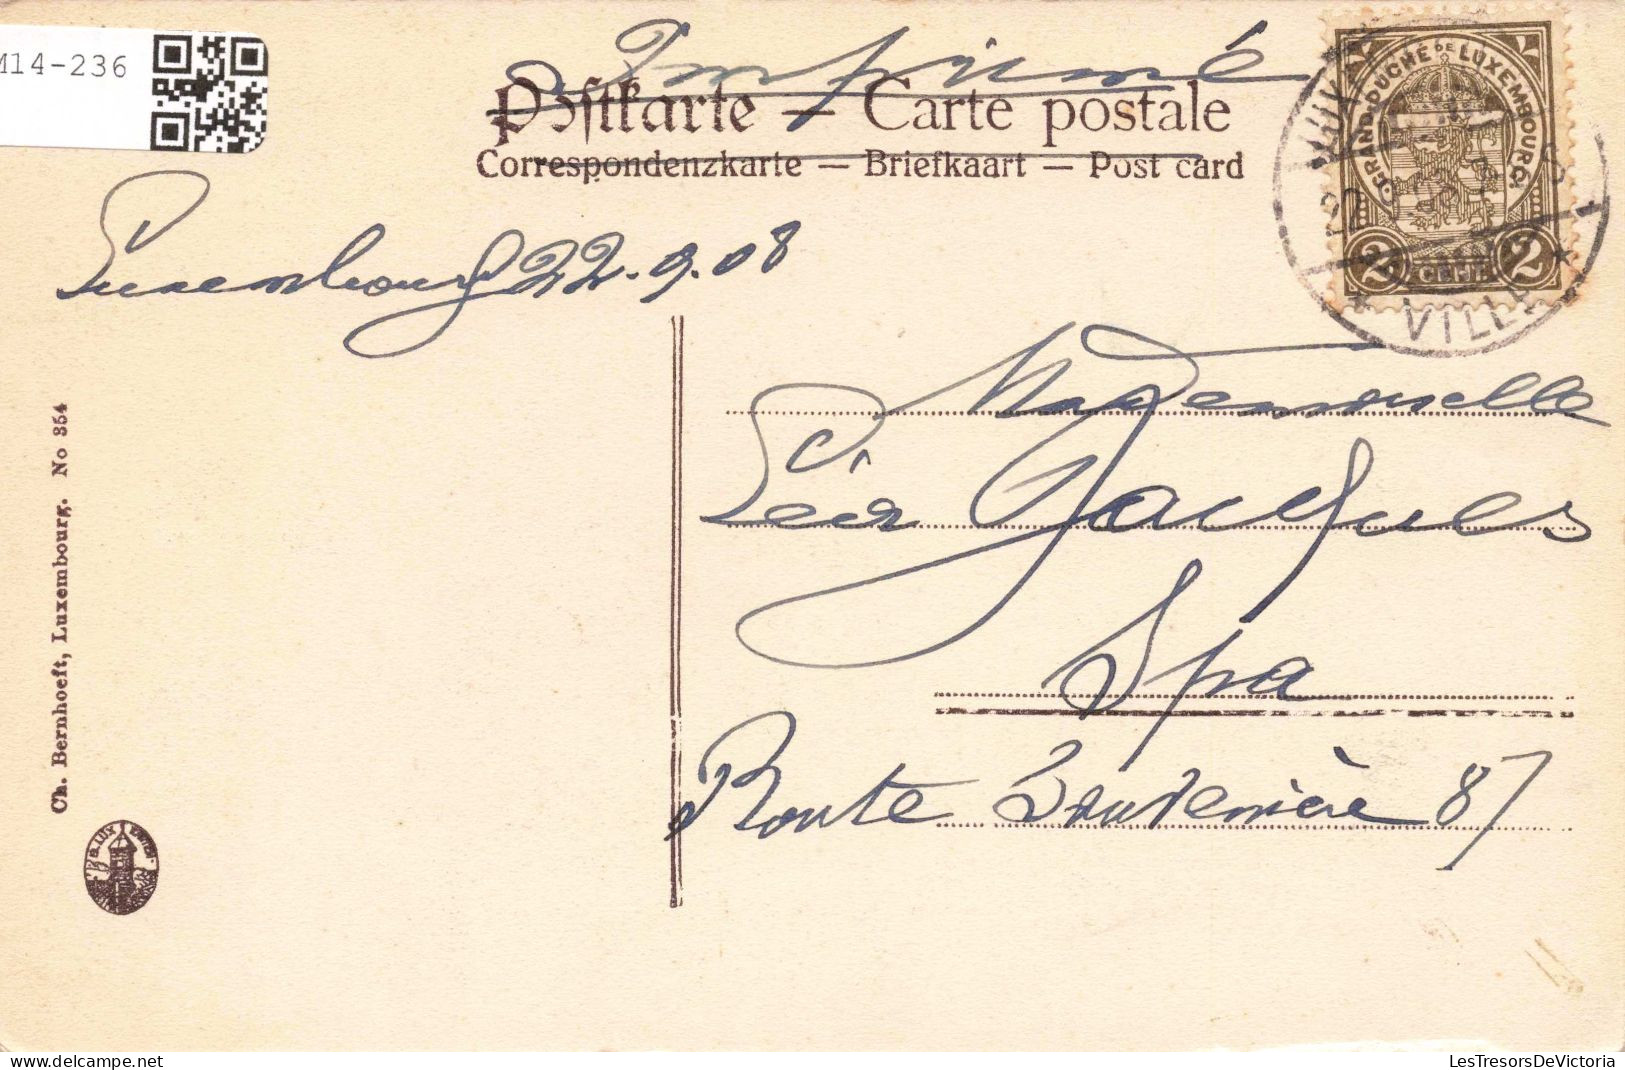 M14-236
Imprimé
Postkarte — Carte postale
Correspondenzkarte — Briefkaart — Post card
GRAND-DUCHÉ DE LUXEMBOURG.
2 CENT. 2
VILLE
Luxembourg 22.9.08
Mademoiselle
Léa Jacques
Spa
Route Sauvenière 87
Ch. Bernhoeft, Luxembourg. No 354
LesTresorsDeVictoria